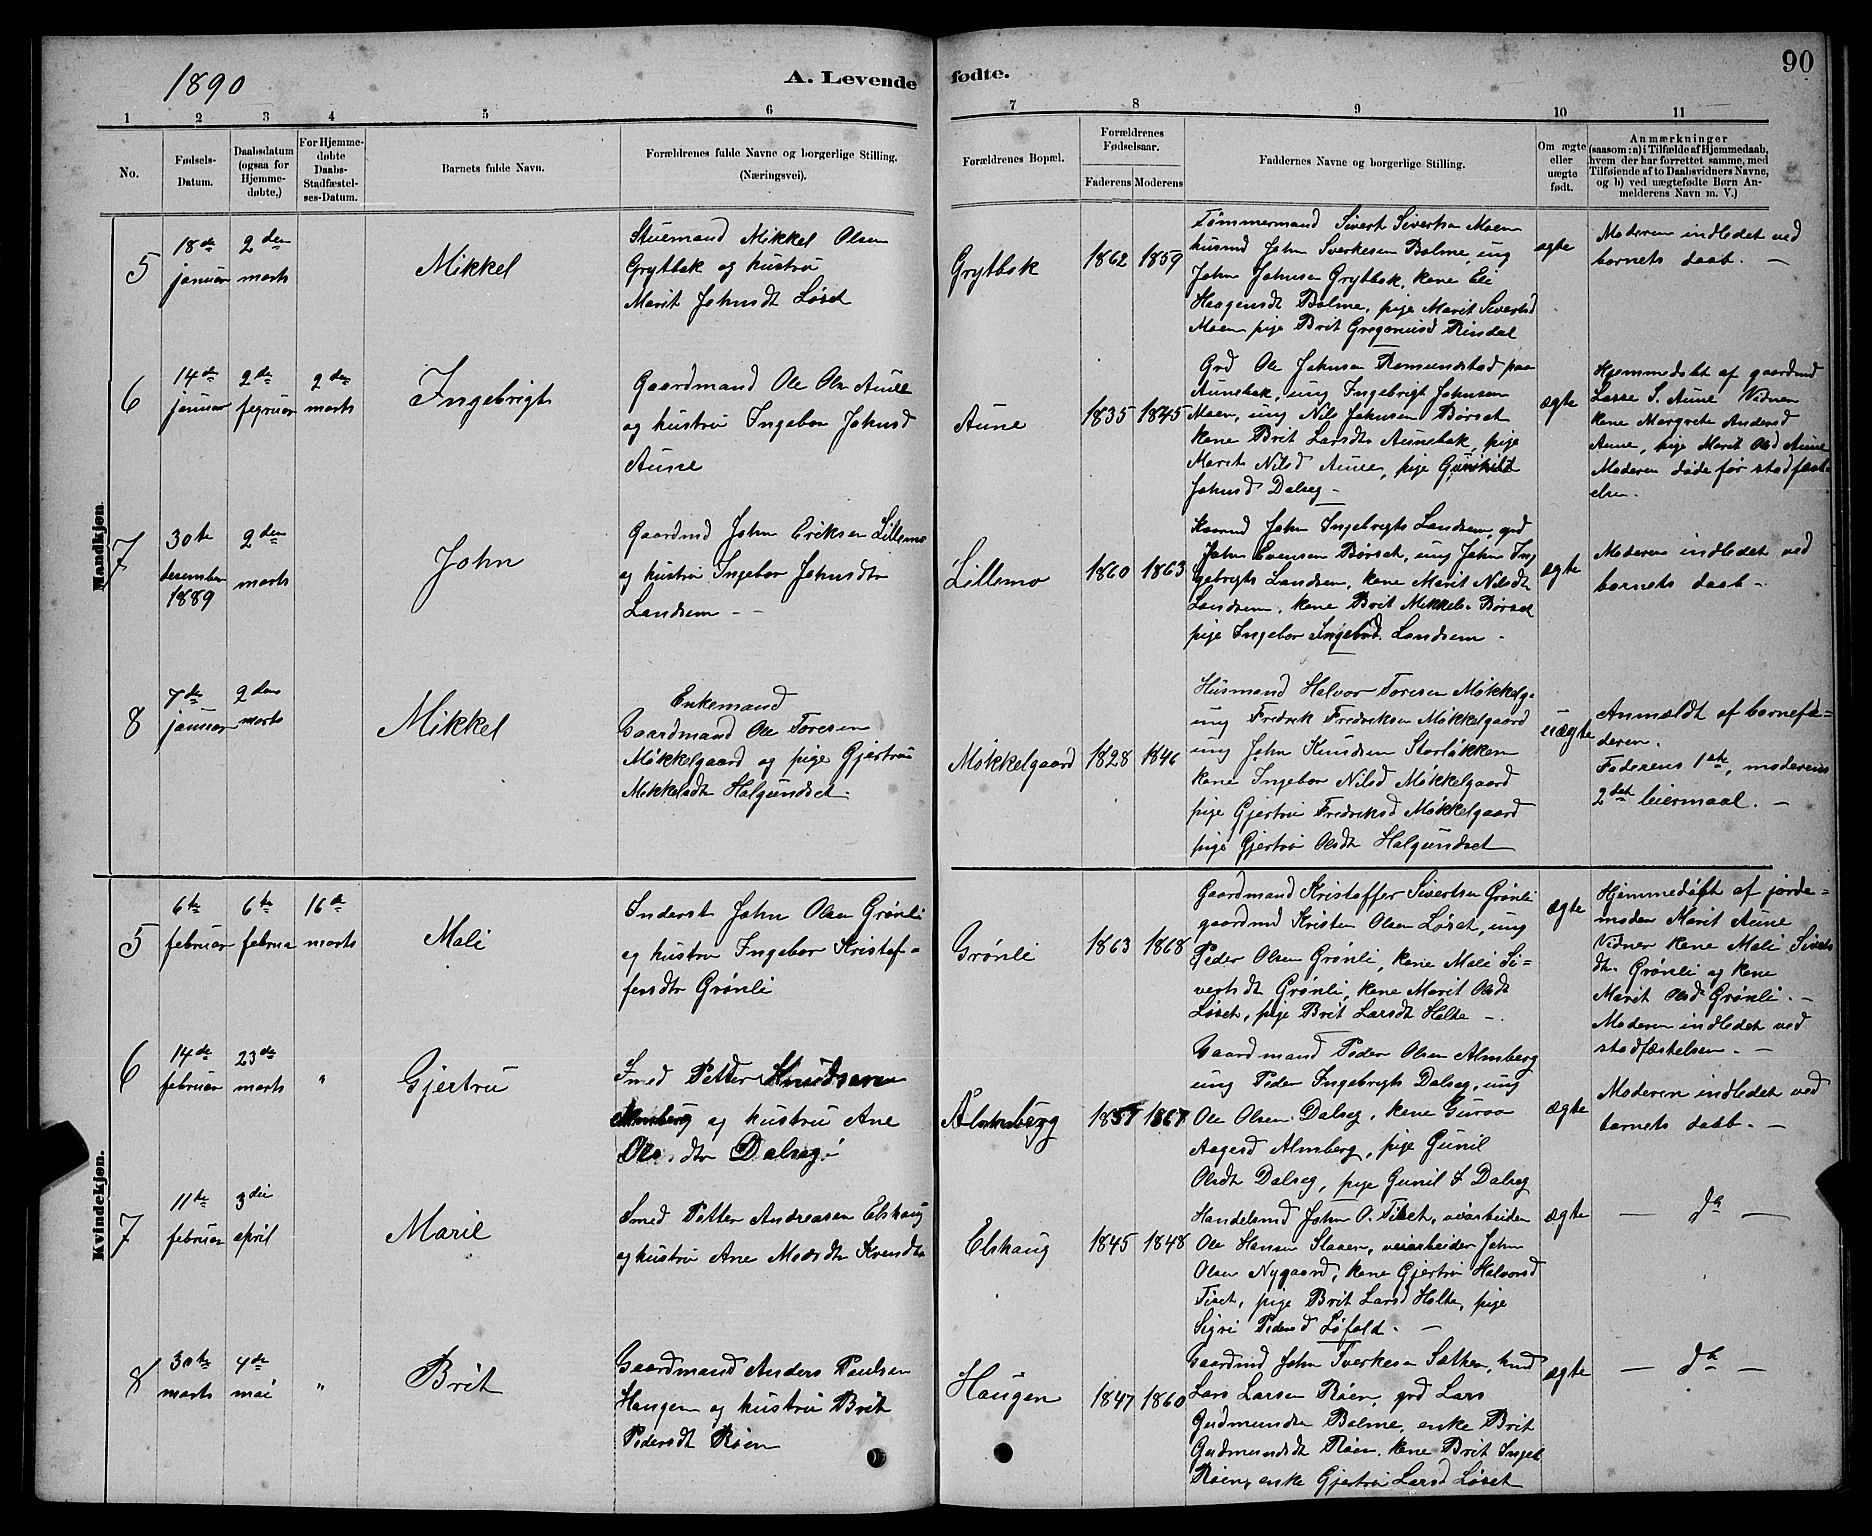 1890
A. Levende fødte.
90
1 2 3 4 5 6 7 8 9 10 11
No.
Fødsels-
Datum.
Daabsdatum
(ogsaa for
Hjemme-
døbte.)
For Hjemme-
døbte
Daabs-
Stadfæstel-
ses-Datum.
Barnets fulde Navn.
Forældrenes fulde Navne og borgerlige Stilling.
(Næringsvei).
Forældrenes Bopæl.
Forældrenes
Fødselsaar.
Faderens Moderens
Faddernes Navne og borgerlige Stilling.
Om ægte
eller
uægte
født.
Anmærkninger
(saasom: a) i Tilfælde af Hjemmedaab,
hvem der har forrettet samme, med
Tilføiende af to Daabsvidners Navne,
og b) ved uægtefødte Børn An-
melderens Navn m. V.)
Mandkjøn
5
18de
januar
2den
marts
Mikkel
Stuemand Mikkel Olsen
Grytbak og hustru
Marit Johnsdt Løset
Grytbak
1862 1859
Tømmermand Sivert Sivertsen Moen
husmd John Sverkesen Bolme, ung
John Johnsen Grytbak, kone Eli
Haagensdt Bolme, pige Marit Sivertsd
Moen pige Brit Gregoriusd Rindal
ægte
Moderen indledet ved
barnets daab. —
6
14de
januar
2de
februar
2den
marts
Ingebrigt
Gaardmand Ole Olsn Aune
og hustru Ingebor Johnsd
Aune
Aune
1835 1845
Grd Ole Johnsen Romundstad paa
Aunebak, ung Ingebrigt Johnsen
Moen, ung Nils Johnsen Børset
kone Brit Larsdtr Aunebak, pige
Marit Nilsd Aune, pige Gunhild
Johnsd Dalseg —
ægte
Hjemmedøbt af gaardmd
Lasse S. Aune Vidner
kone Margrete Andersd
Aune, pige Marit Olsd Aune
Moderen døde før stadfæst-
elsen.
7
30te
desember
1889
2den
marts
John
Gaardmd John Eriksen Lillemo
og hustru Ingebor Johnsdtr
Landsem — —
Lillemo
1860 1863
John Ingebrigts Landsem, grd
John Evensen Børset, ung John In
gebrigts Landsem, kone Marit Nilsdt
Landsem, kone Brit Mikkels. Børset
pige Ingebor Ingebrd. Landsem -
ægte
Moderen indledet ved
barnets daab —
8
7de
januar
2den
marts
Mikkel
Enkemand
Gaardmand Ole Toresen
Møkkelgaard og pige Gjertru
Mikkelsdt Halgundset.
Møkkelgaard
1828 1846
Husmand Halvor Toresen Møkkelg.
ung Fredrik Fredriksen Møkkelgaard
ung John Knudsen Storløkken
kone Ingebor Nilsd Møkkelgaard
pige Gjertru Fredriksd Møkkelgaard
pige Gjertru Olsdt Halgundset
uægte
Anmeldt af barnefa=
deren.
Faderens 1ste, moderens
2det leiermaal. —
Kvindekjøn.
5
6te
februar
6te
februa
16de
marts
Mali
Inderst John Olsn Grønli
og hustru Ingebor Kristof-
fersdtr Grønli
Grønli
1863 1868
Gaardmand Kristoffer Sivertsen Grønli
gaardmd Kristen Olsen Løset, ung
Peder Olsen Grønli, kone Mali Si=
vertsdt Grønli, kone Marit Olsdt
Løset, pige Brit Larsdt Holte —.
ægte
Hjemmedøbt af jorde=
moder Marit Aune
Vidner kone Mali Siverts
dt. Grønli og kone
Marit Olsd Grønli. —
Moderen indledet ved
stadfæstelsen. —
6
14de
februar
23de
marts
"
Gjertru
Smed Petter Knudsen
Almberg og hustru Ane
Ols dtr Dalseg.
Almberg
1857 1867
Gaardmand Peder Olsen Almberg
ung Peder Ingebrigts Dalseg, ung
Ole Olsen Dalseg, kone Guroa
Aagesd Almberg, pige Gunil
Olsdt Dalseg, pige Gunil I Dalseg
ægte
Moderen indledet ved
barnets daab. —
7
11te
februar
3die
april
Marie
Smed Petter Andreasen Elshaug
og hustru Ane Kvendt
Elshaug
1845 1848
Handelsmd John O. Tiset, veiarbeider
Ole Hansen Staxen, veiarbeider John
Olsen Nygaard, kone Gjertru Halvorsd
Tiset, pige Brit Larsd Holte, pige
Sigri Pedersd Løfald. —
ægte
— do —
8
30te
marts
4de
mai
"
Brit
Gaardmand Anders Paulsen
Haugen og hustru Brit
Pedersdt Røen
Haugen
1847 1860
Gaardmd John Sverkesn Sæther, husmd
Lars Larsen Røen, grd Lars
Gudmundsen Bolme, enke Brit
Gudmundsdt Røen, kone Brit Ingeb.
Røen, enke Gjertru Larsd Løset
ægte
— do —